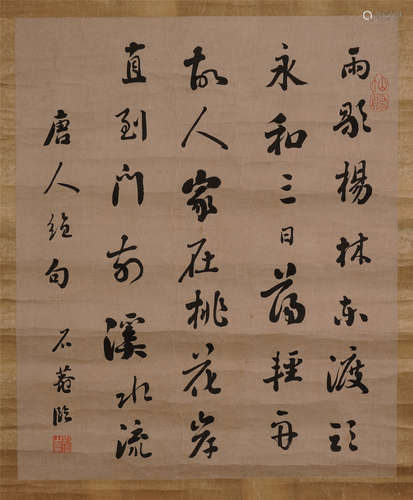 雨歇楊林東渡頭
永和三日蕩輕舟
故人家在桃花岸
直到門前溪水流
唐人絕句
石菴臨